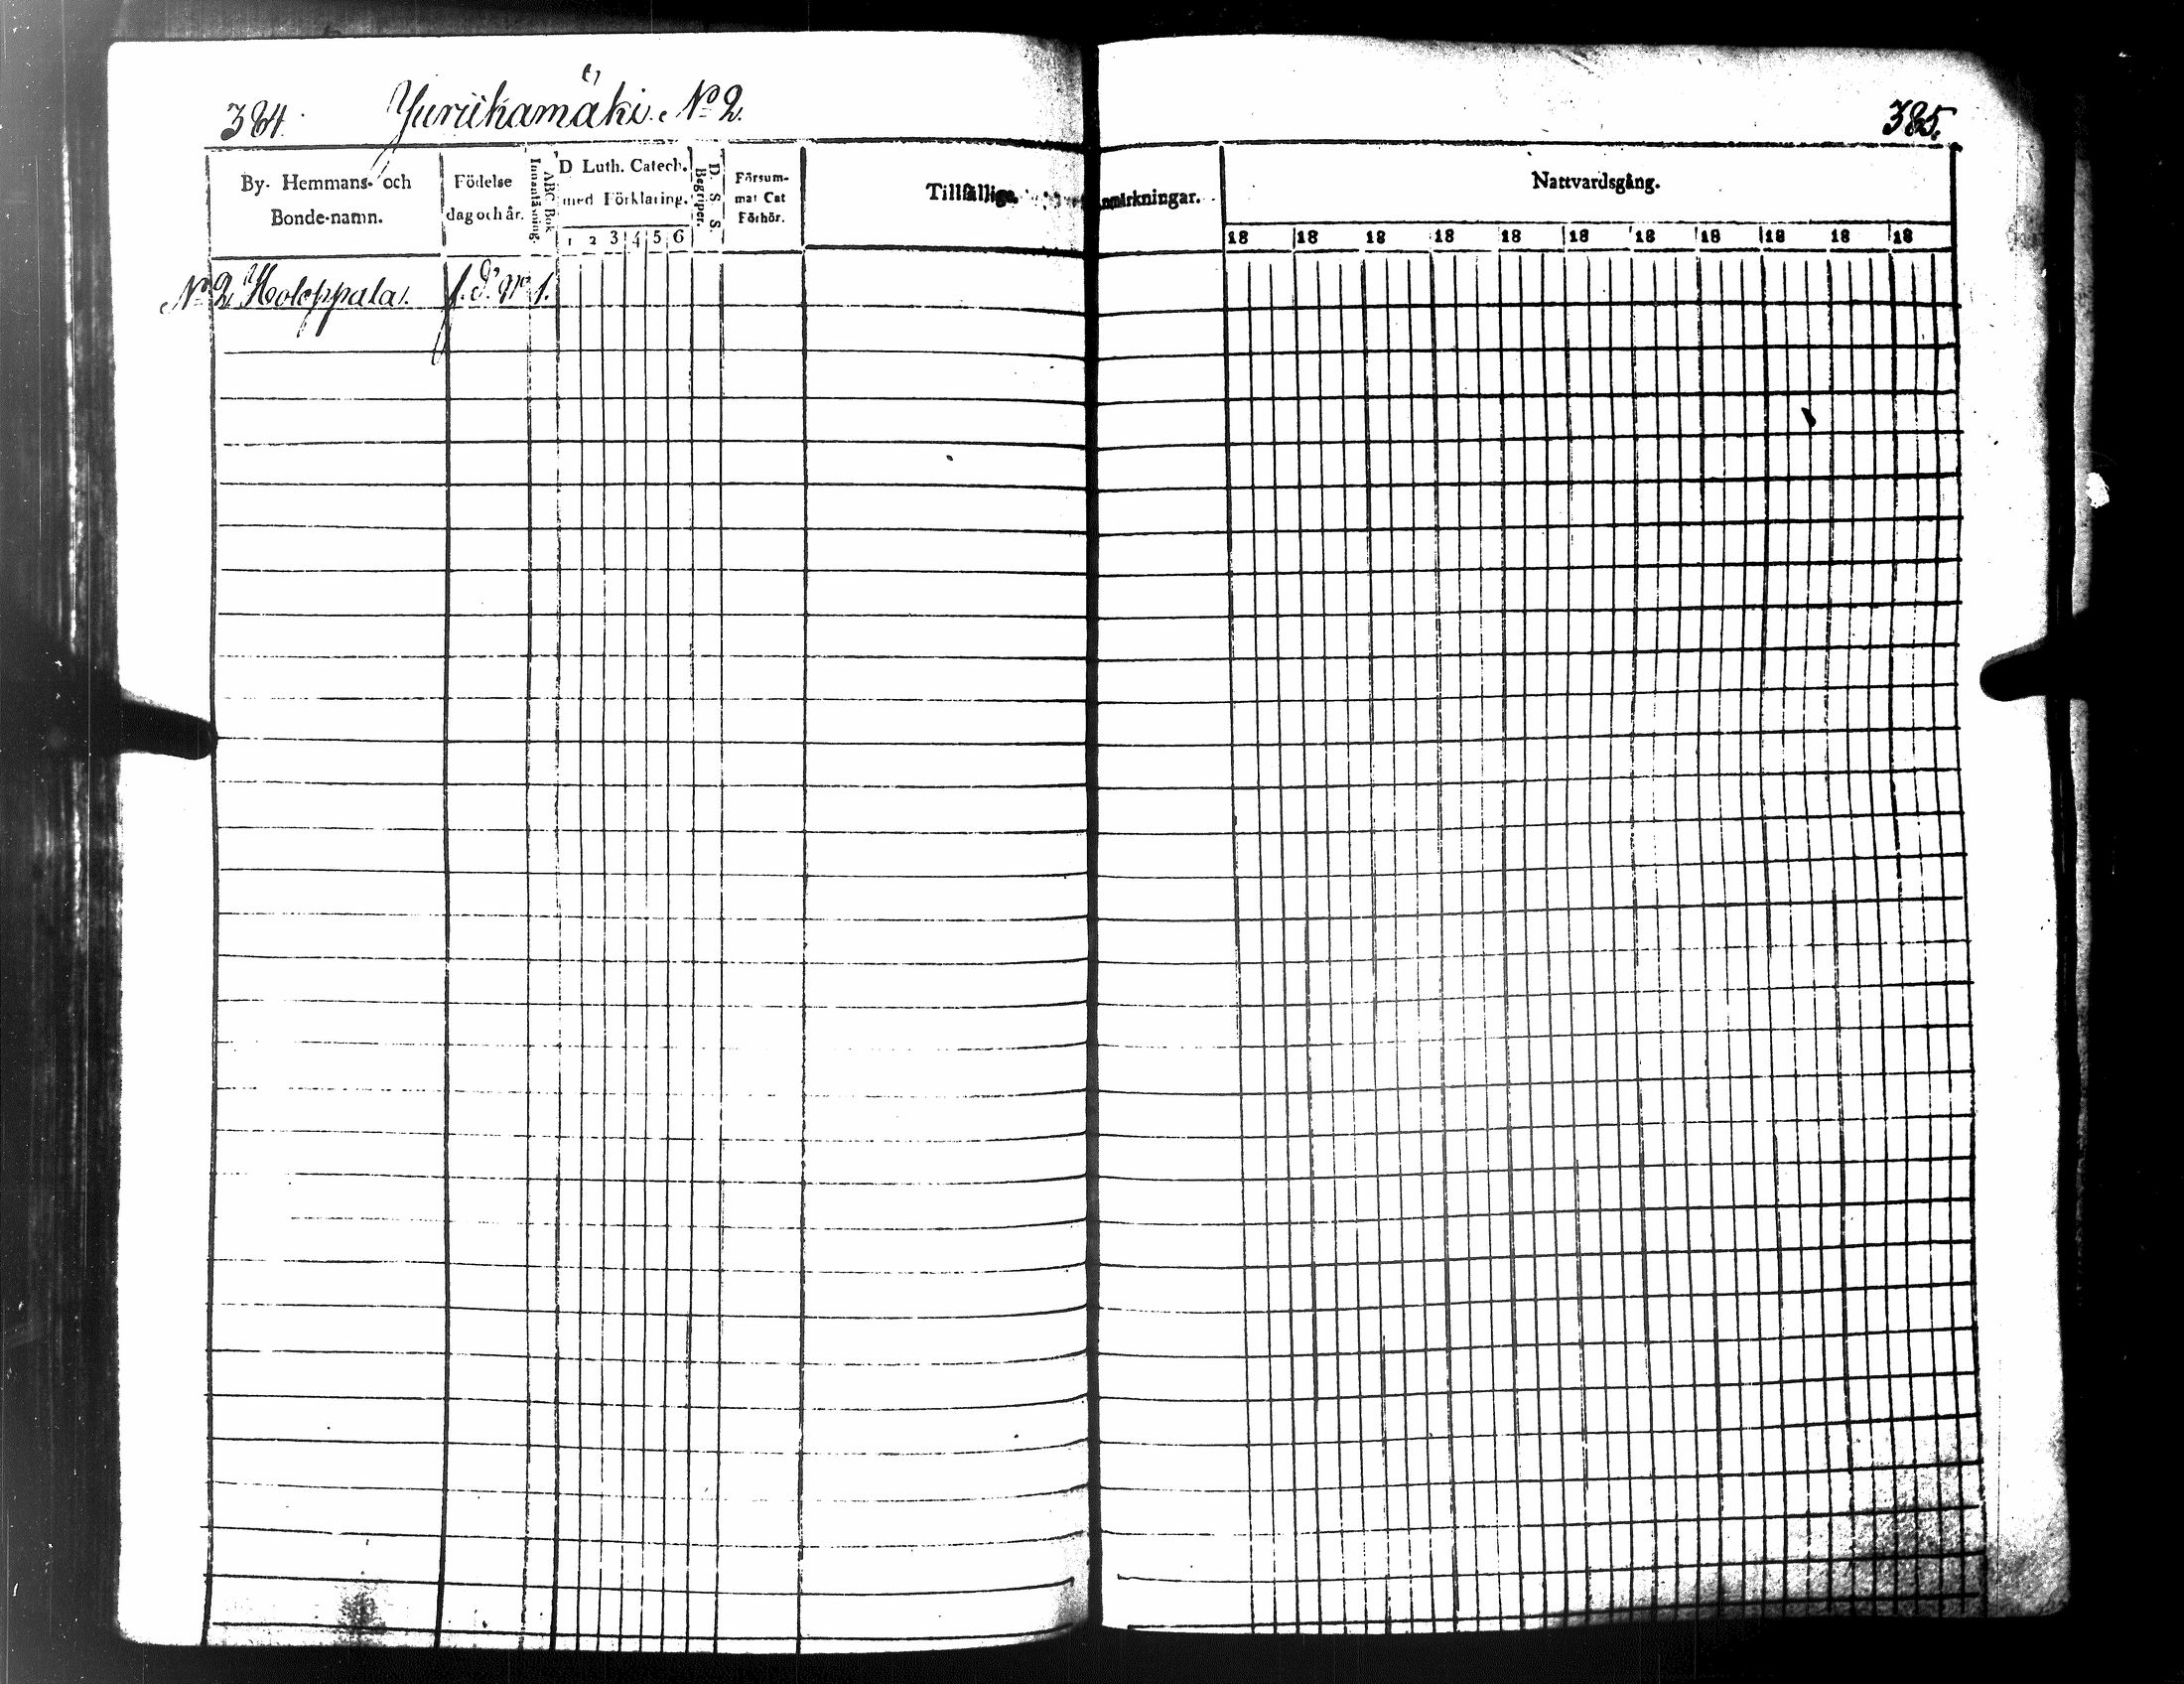 384. Yuriikamäki. No 2.
385.
By- Hemmans- och
Bonde-namn.
Födelse
dag och år.
Innanläsning.
ABC Bok
D Luth. Catech.
med Förklaring.
1 2 3 4 5 6
D. S. S.
Begriper.
Försum-
mat Cat
Förhör.
Tillfällige Anmärkningar.
Nattvardsgång.
18 18 18 18 18 18 18 18 18 18 18
No 2 Holoppala. f. d. No 1.